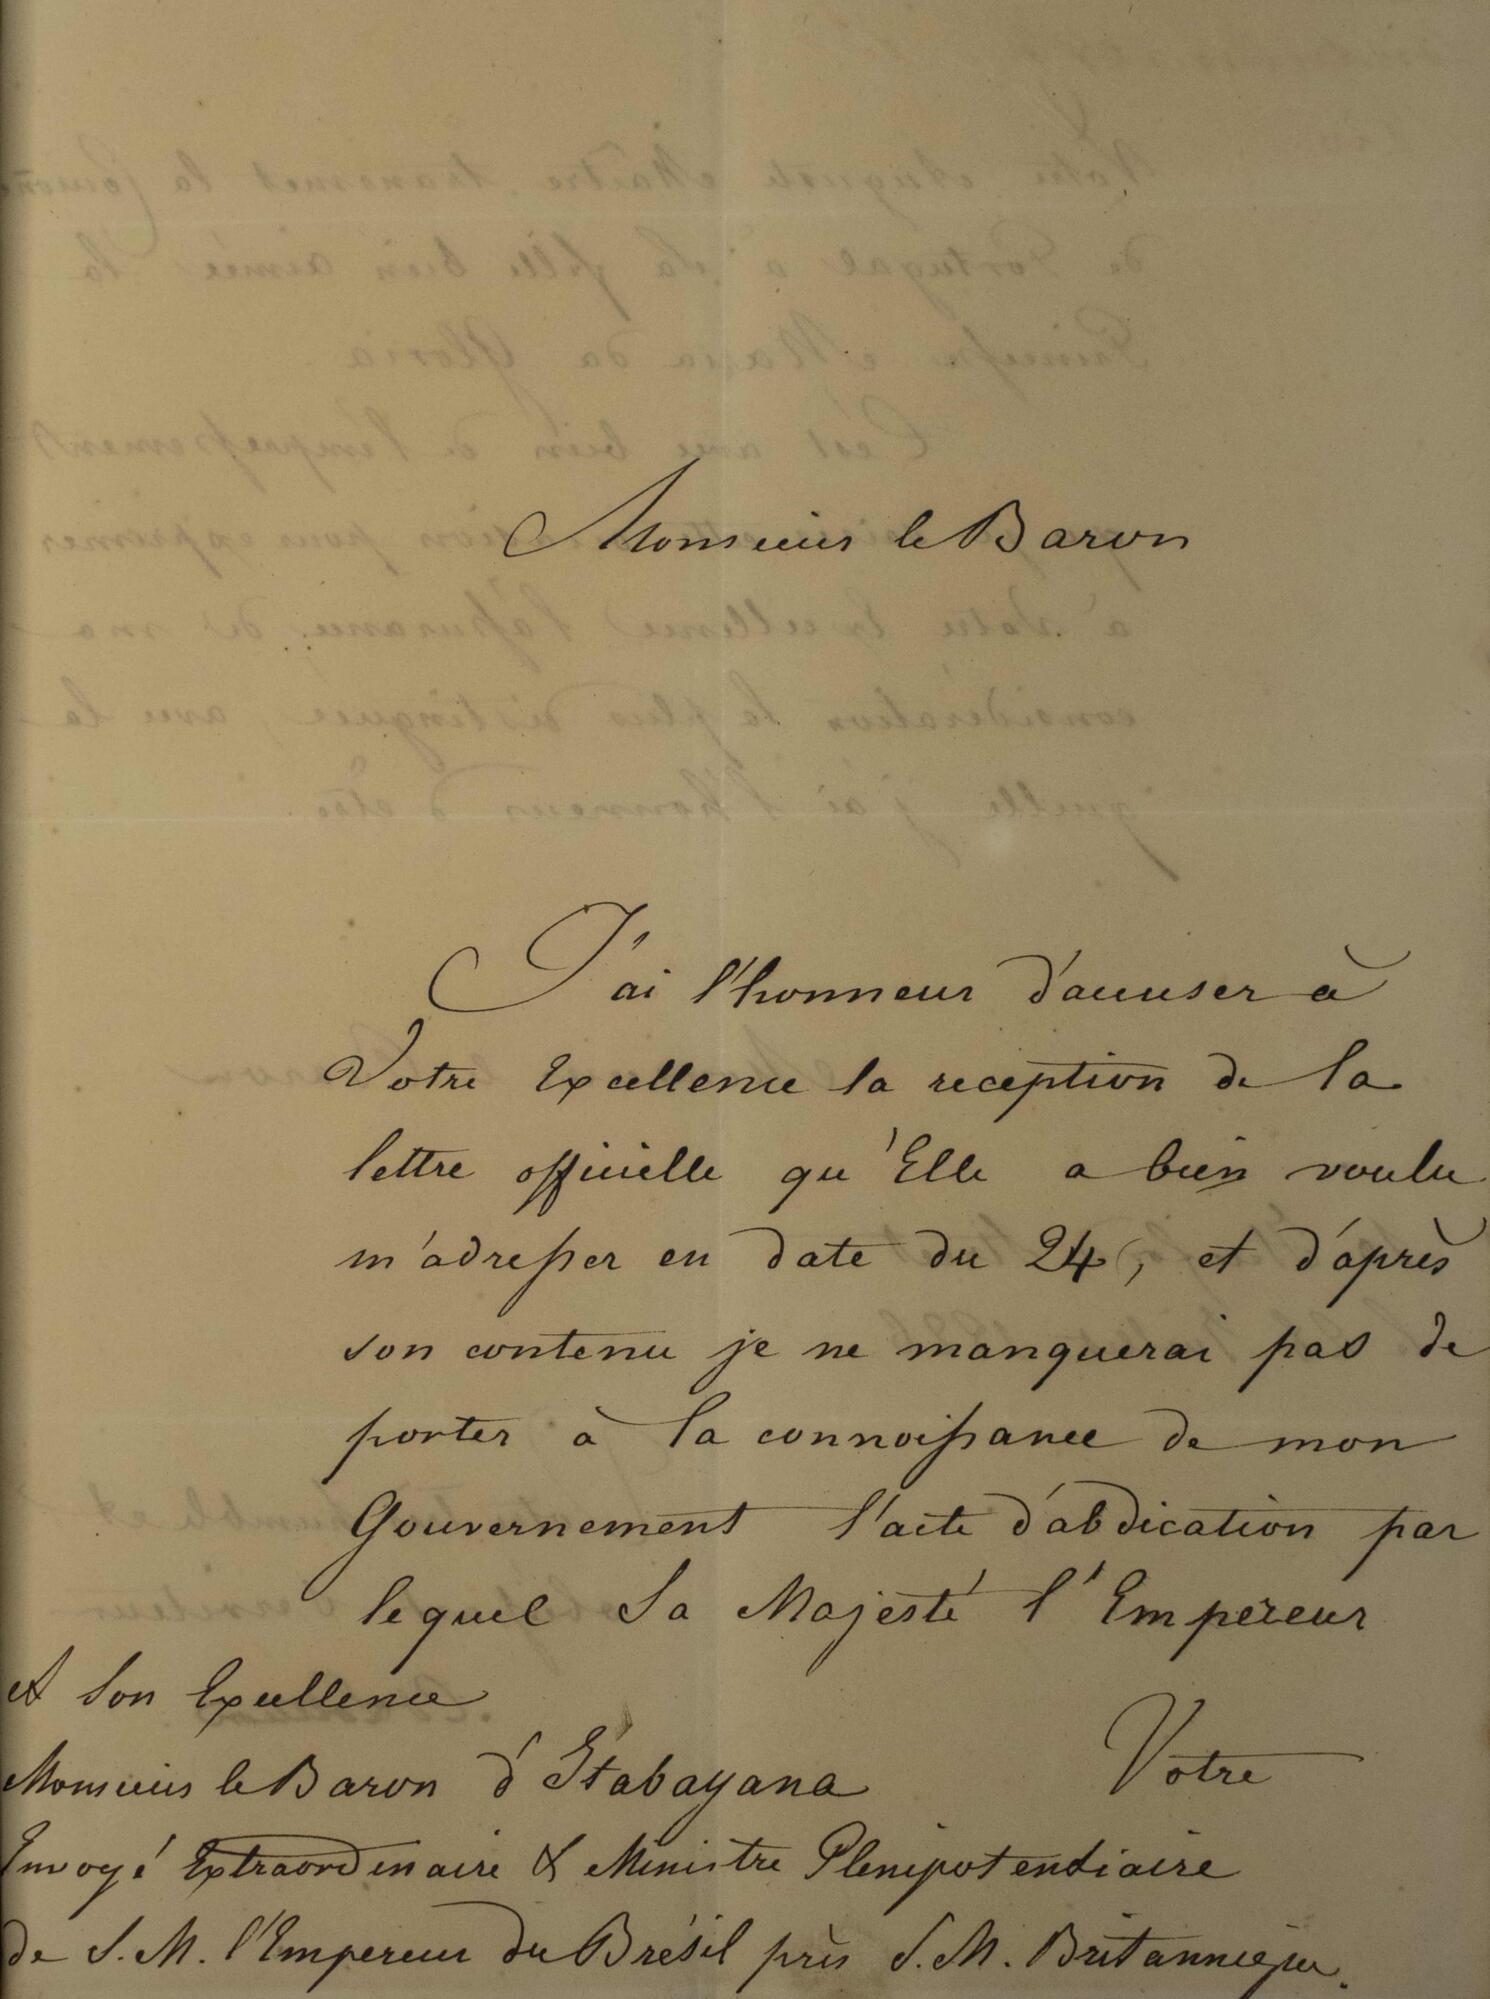 Monsieur le Baron
J'ai l'honneur d'accuser à
Votre Excellence la reception de la
lettre officielle qu'Elle a bien voulu
m'adresser en date du 24, et d'après
son contenu je ne manquerai pas de
porter à la connoissance de mon
Gouvernement l'acte d'abdication par
lequel Sa Majesté l'Empereur
Votre
A Son Excellence
Monsieur le Baron d'Itabayana
Envoyé Extraordinaire & Ministre Plenipotentiaire
de S. M. l'Empereur du Brésil près S. M. Britannique.